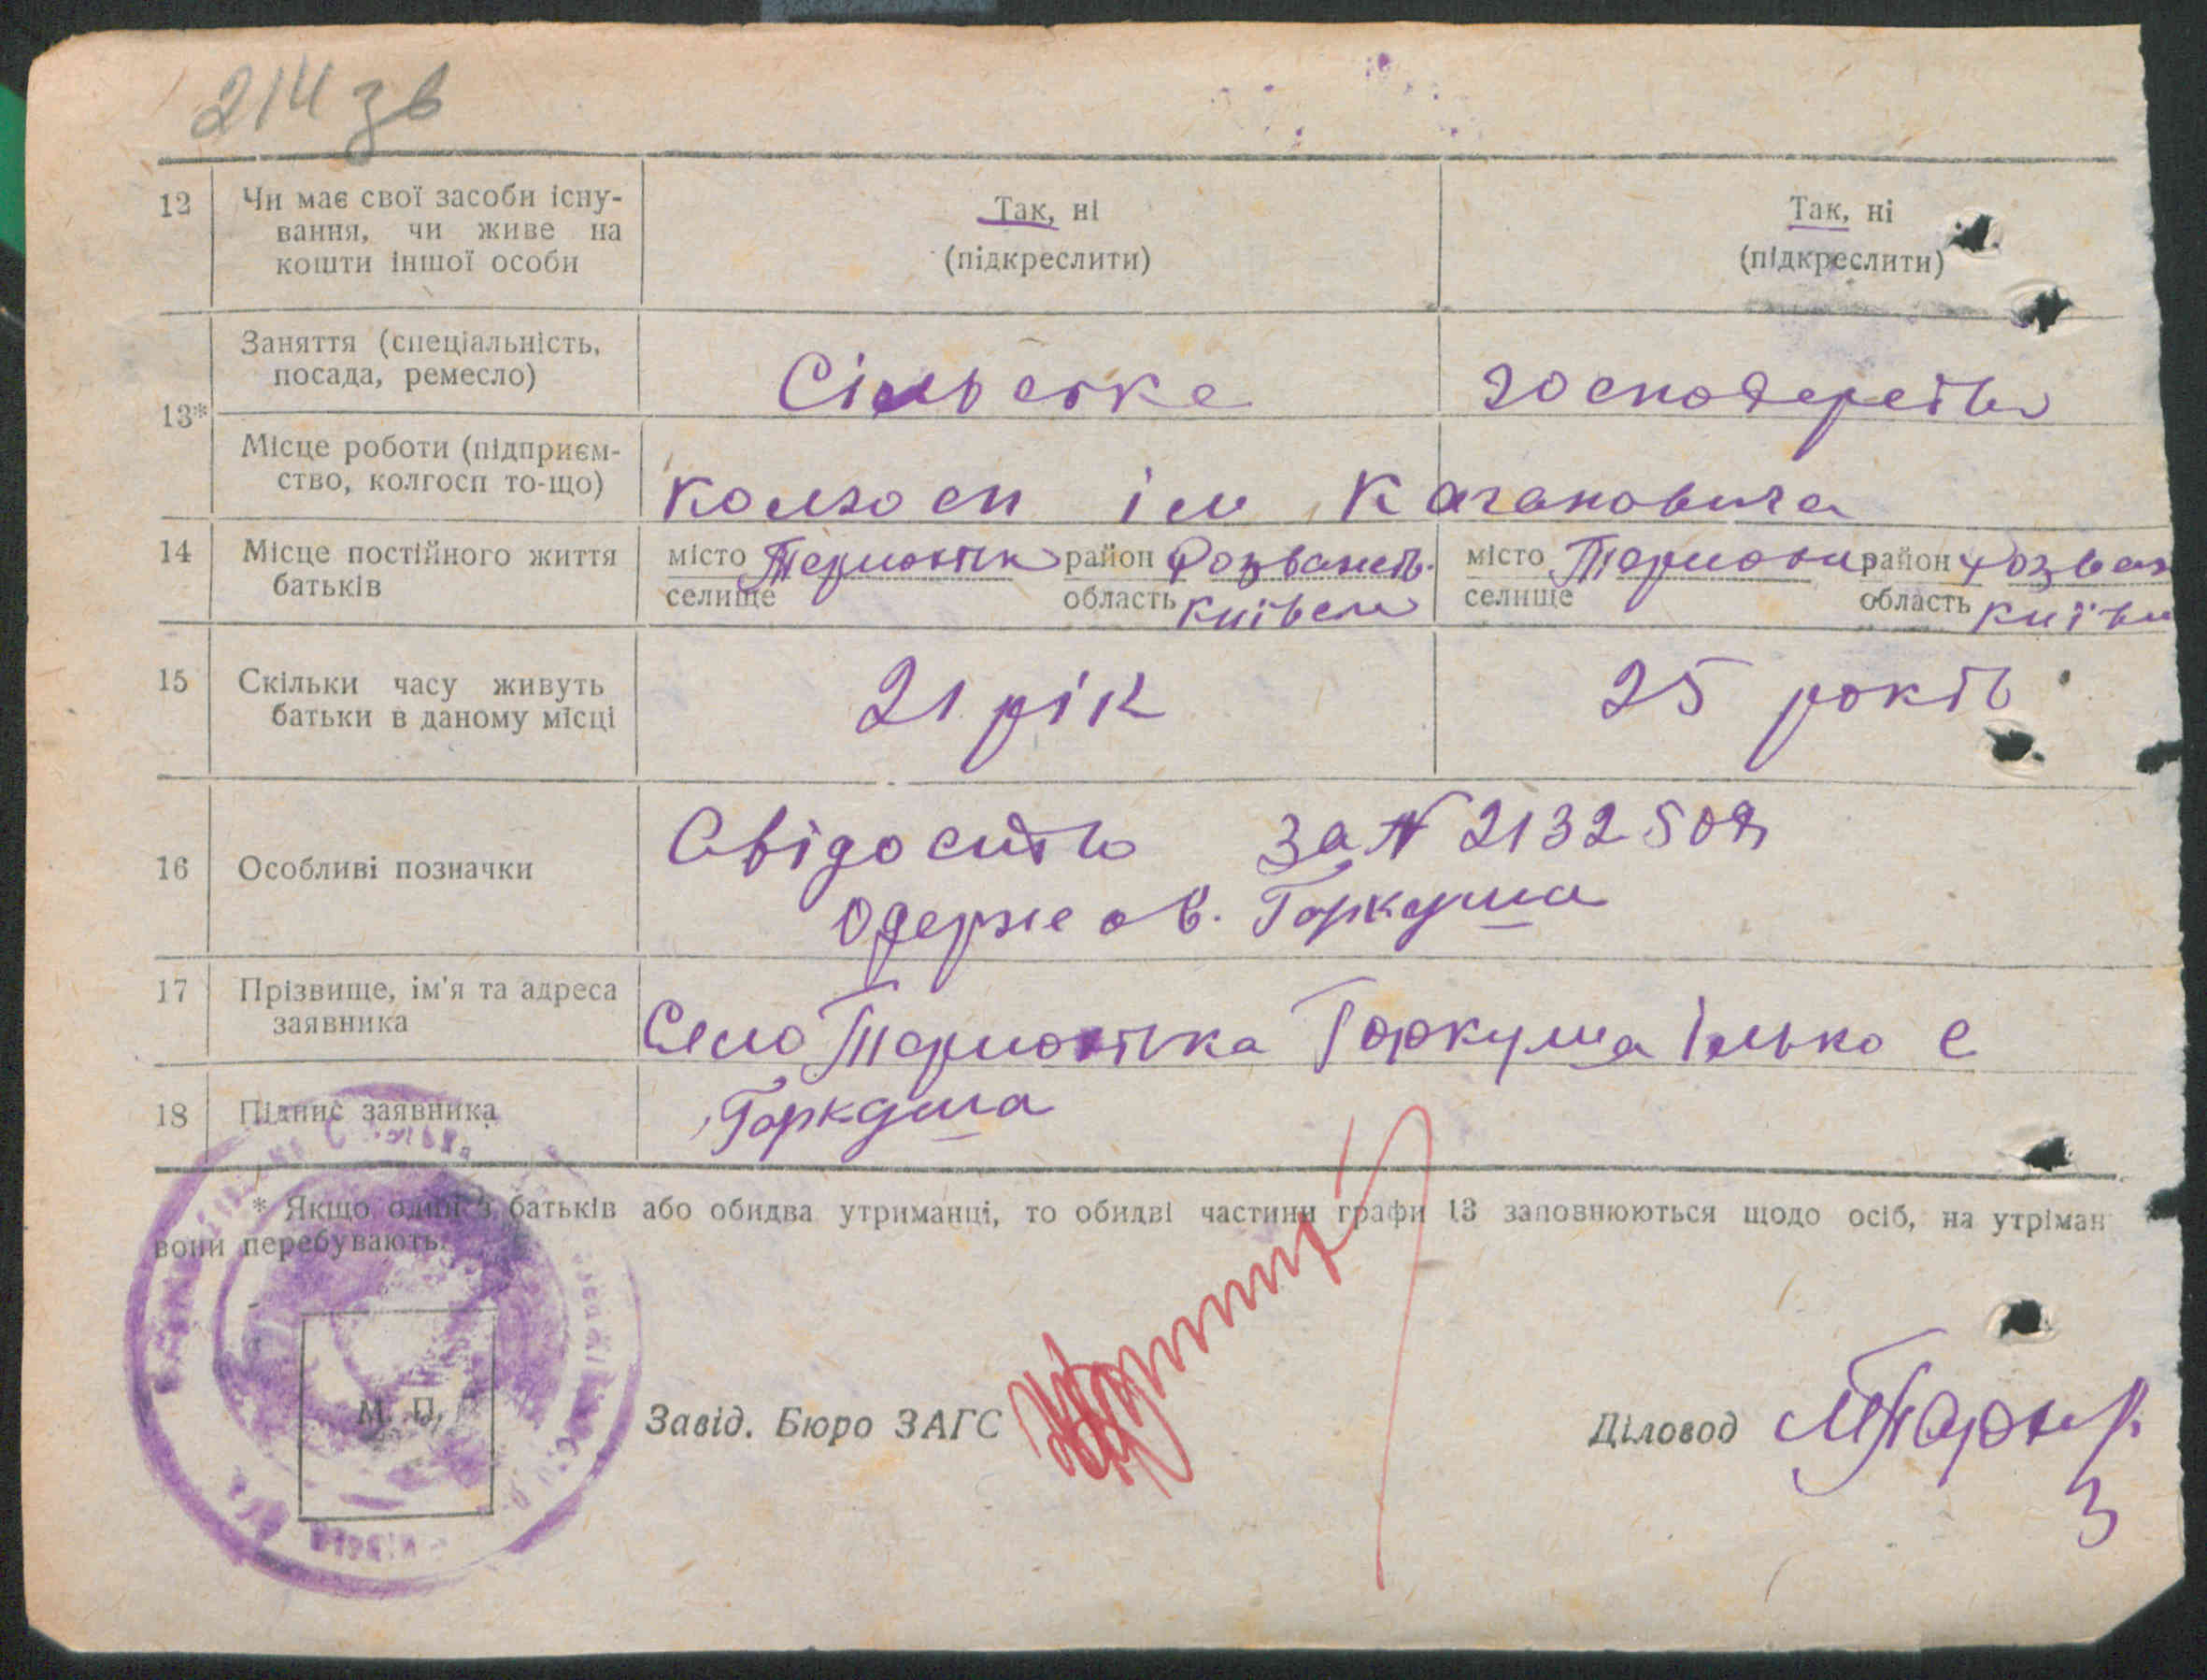 214 зв
12 Чи має свої засоби існу-
вання, чи живе на
кошти іншої особи
Так, ні
(підкреслити)
Так, ні
(підкреслити)
13*
Заняття (спеціальність,
посада, ремесло)
Сільське господарство
Місце роботи (підприєм-
ство, колгосп то-що)
колгосп ім Кагановича
14 Місце постійного життя
батьків
місто район
селище область
місто район
селище область
15 Скільки часу живуть
батьки в даному місці
21 рік
25 років
16 Особливі позначки
за №
Одержав. Горкуша
17 Прізвище, ім'я та адреса
заявника
Село Горкуша Ілько С
18 Підпис заявника
Горкуша
* Якщо один з батьків або обидва утриманці, то обидві частини графи 13 заповнюються щодо осіб, на утріман
вони перебувають.
М. П.
Завід. Бюро ЗАГС
Діловод